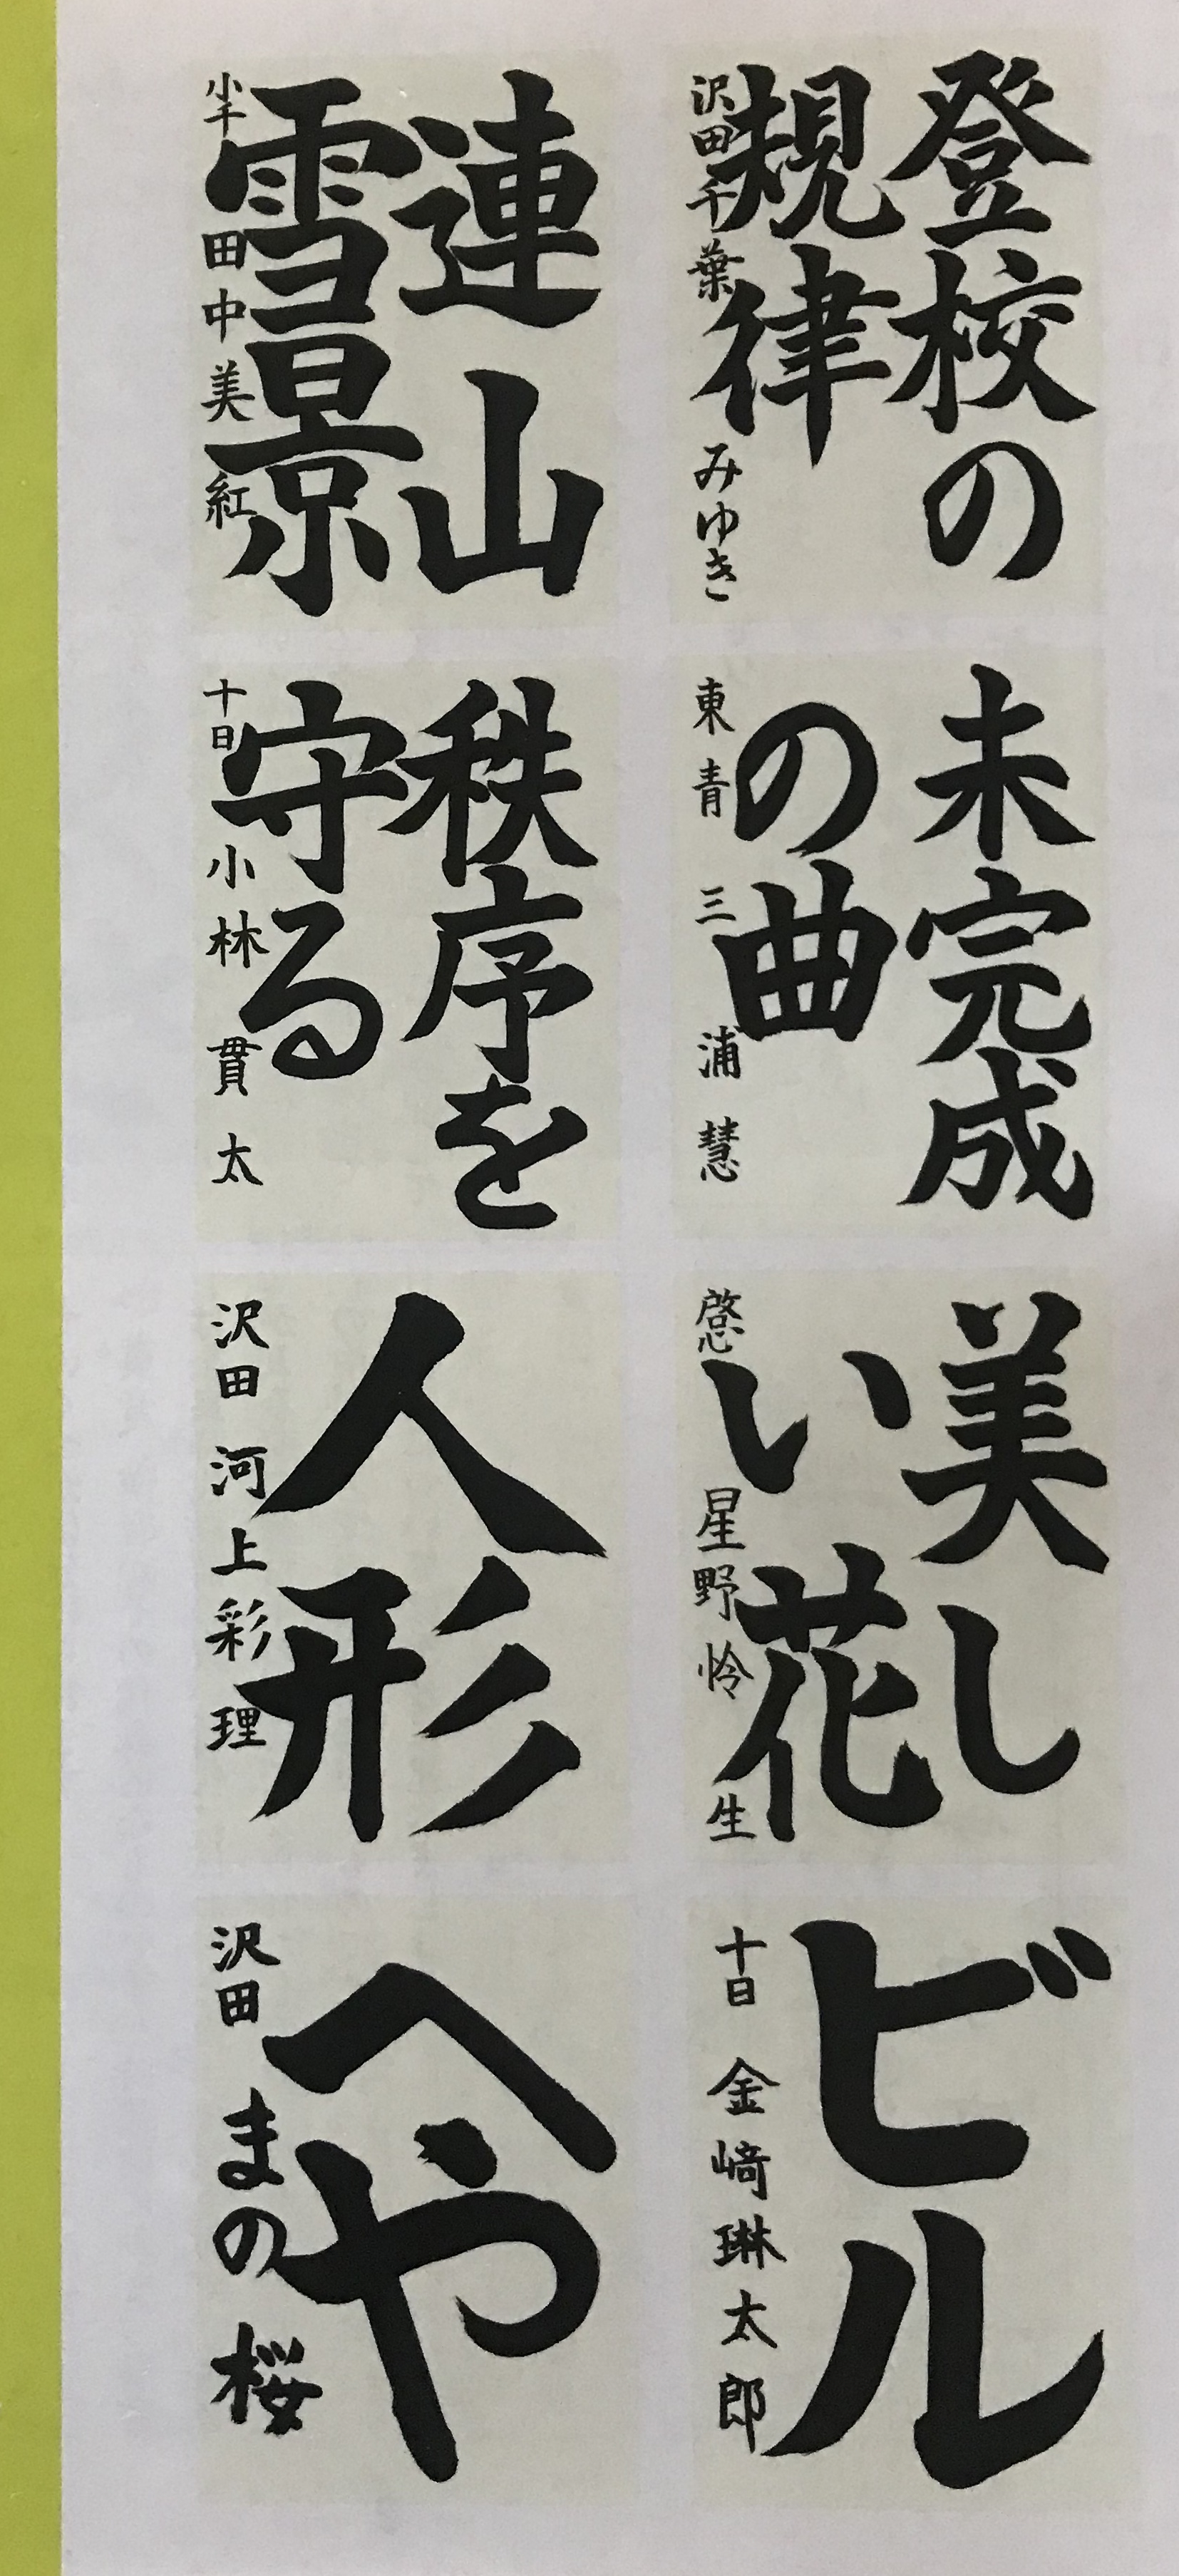 登校の
規律
沢田 千葉みゆき
連山
雪景
小千 田中美紅
未完成
の曲
東青 三浦慧
秩序を
守る
十日 小林貫太
美し
い花
啓 星野怜生
人形
沢田 河上彩理
ビル
十日 金﨑琳太郎
へや
沢田 まの桜